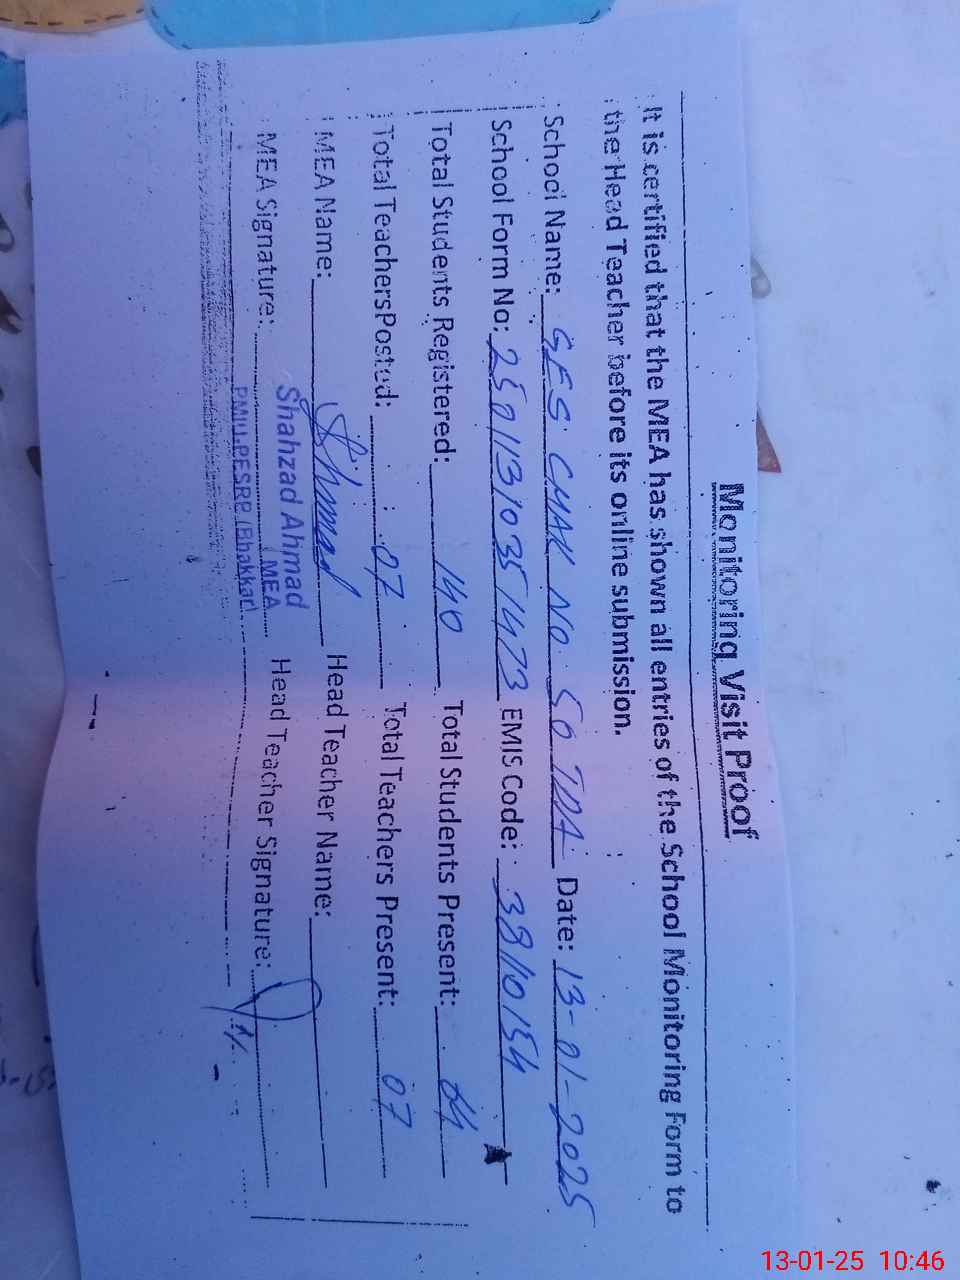 Monitoring Visit Proof
It is certified that the MEA has shown all entries of the School Monitoring Form to
the Head Teacher before its online submission.
School Name: GES CHAK NO 56 TDA Date: 13-01-2025
School Form No: 25011310351473 EMIS Code: 38110154
Total Students Registered: 140 Total Students Present: 64
Total Teachers Posted: 07 Total Teachers Present: 07
MEA Name: Head Teacher Name:
MEA Signature: Head Teacher Signature:
Shahzad Ahmad
MEA
PMIU-PESRP (Bhakkar)
13-01-25 10:46